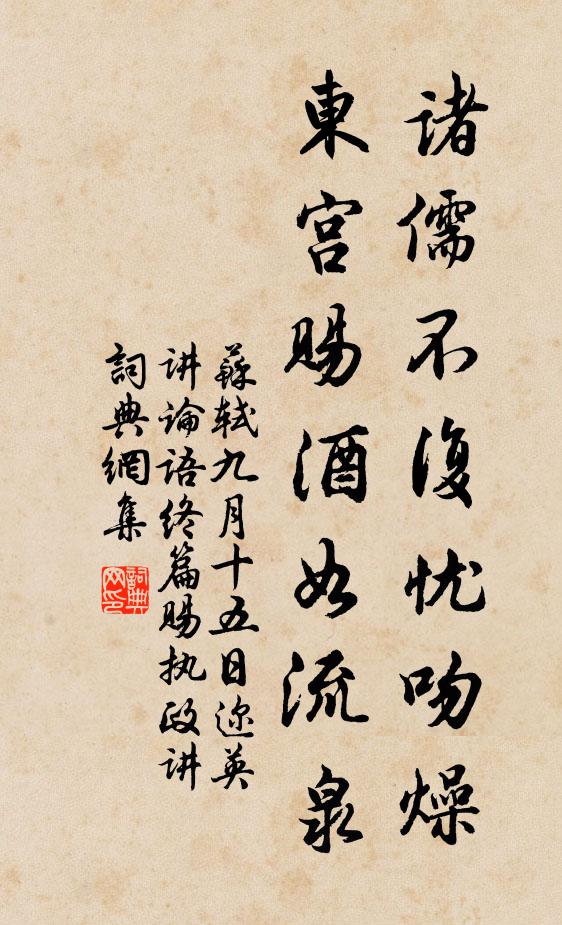 諸儒不復忧吻燥
東宫賜酒如流泉
蘇轼九月十五日迩英
讲論语终篇赐执政讲
詞典網集
詞典
网印